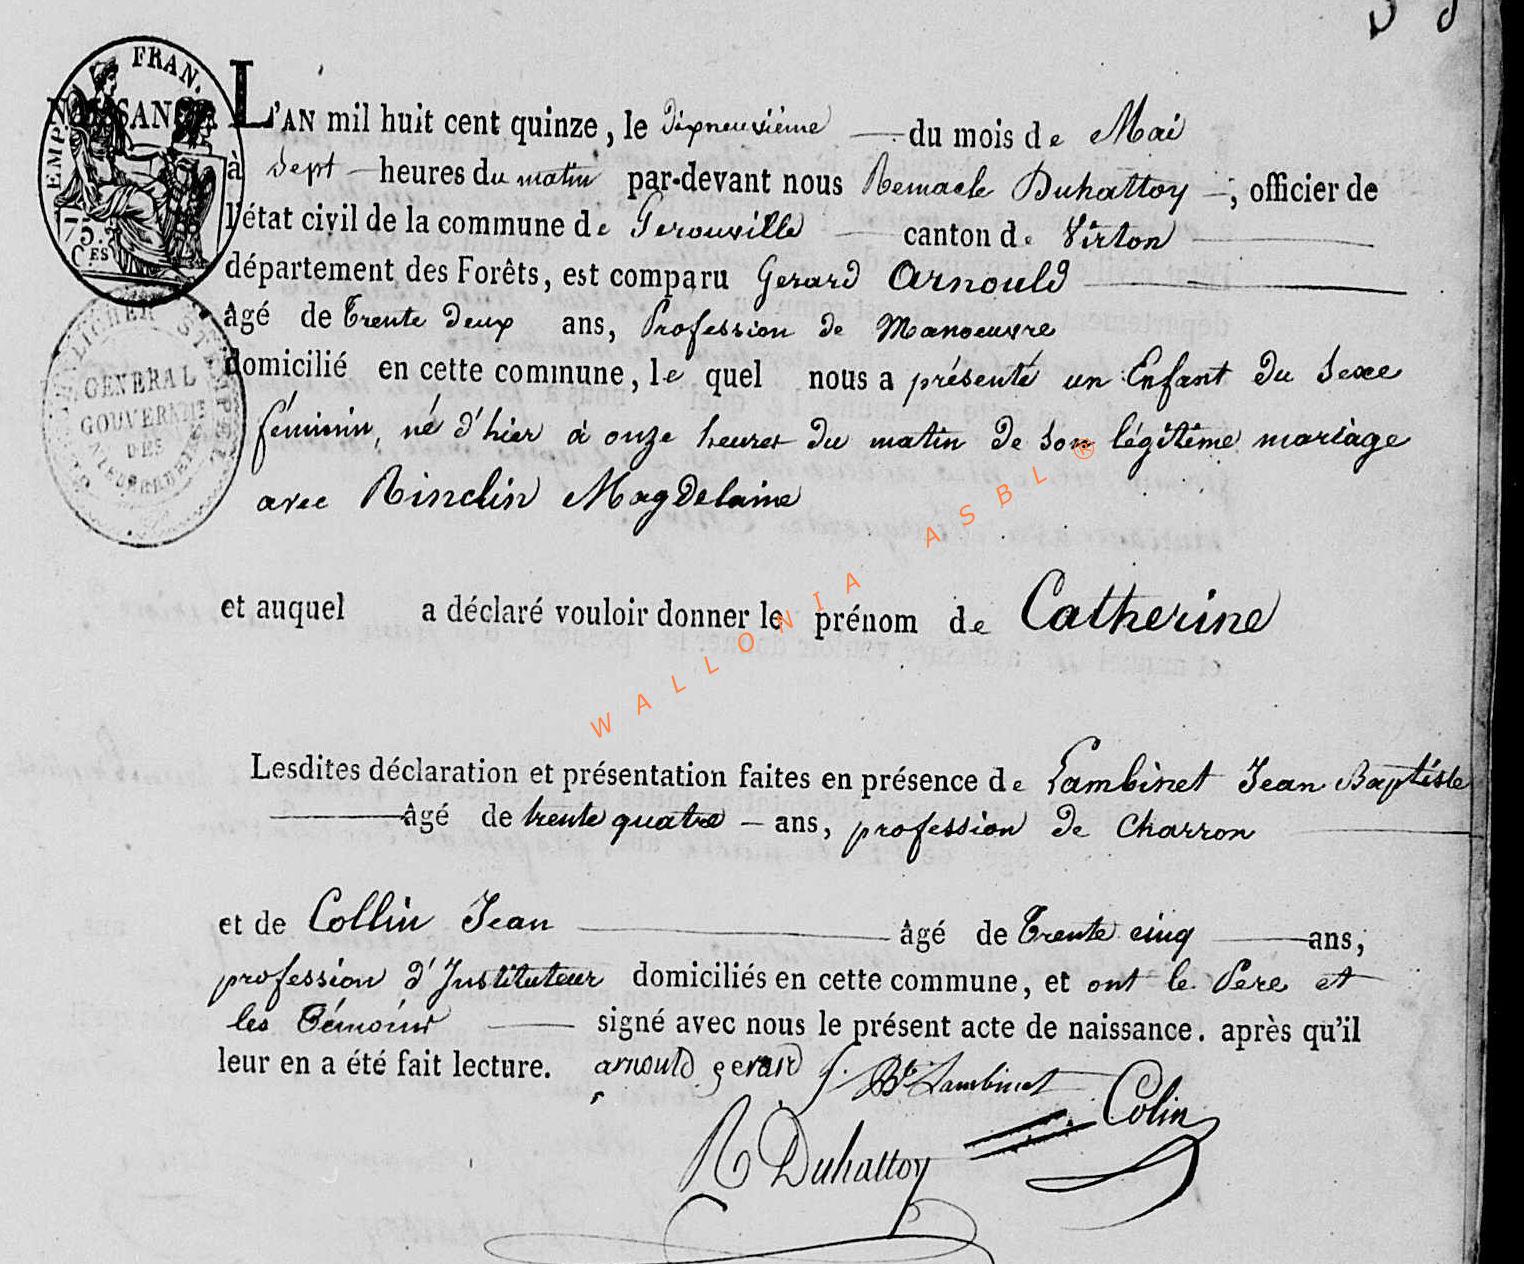 EMP. FRAN.
NAISSANCE
75. CES
L'AN mil huit cent quinze, le dixneuvième du mois de Mai
à sept heures du matin par-devant nous Remacle Duhattoy, officier de
l'état civil de la commune de Gerouville canton de Virton
département des Forêts, est comparu Gerard Arnould
âgé de Trente deux ans, Profession de Manoeuvre
domicilié en cette commune, le quel nous a présenté un Enfant du Sexe
féminin, né d'hier à onze heures du matin de son légitime mariage
avec Rinclin Magdelaine
GENERAL
GOUVERNMT
DES
et auquel a déclaré vouloir donner le prénom de Catherine
WALLONIA ASBL ®
Lesdites déclaration et présentation faites en présence de Lambinet Jean Baptiste
âgé de trente quatre ans, profession de Charron
et de Collin Jean âgé de Trente cinq ans,
profession d'Instituteur domiciliés en cette commune, et ont le Pere et
les Témoins signé avec nous le présent acte de naissance. après qu'il
leur en a été fait lecture. arnould gerard J. Bte Lambinet Colin
R Duhattoy